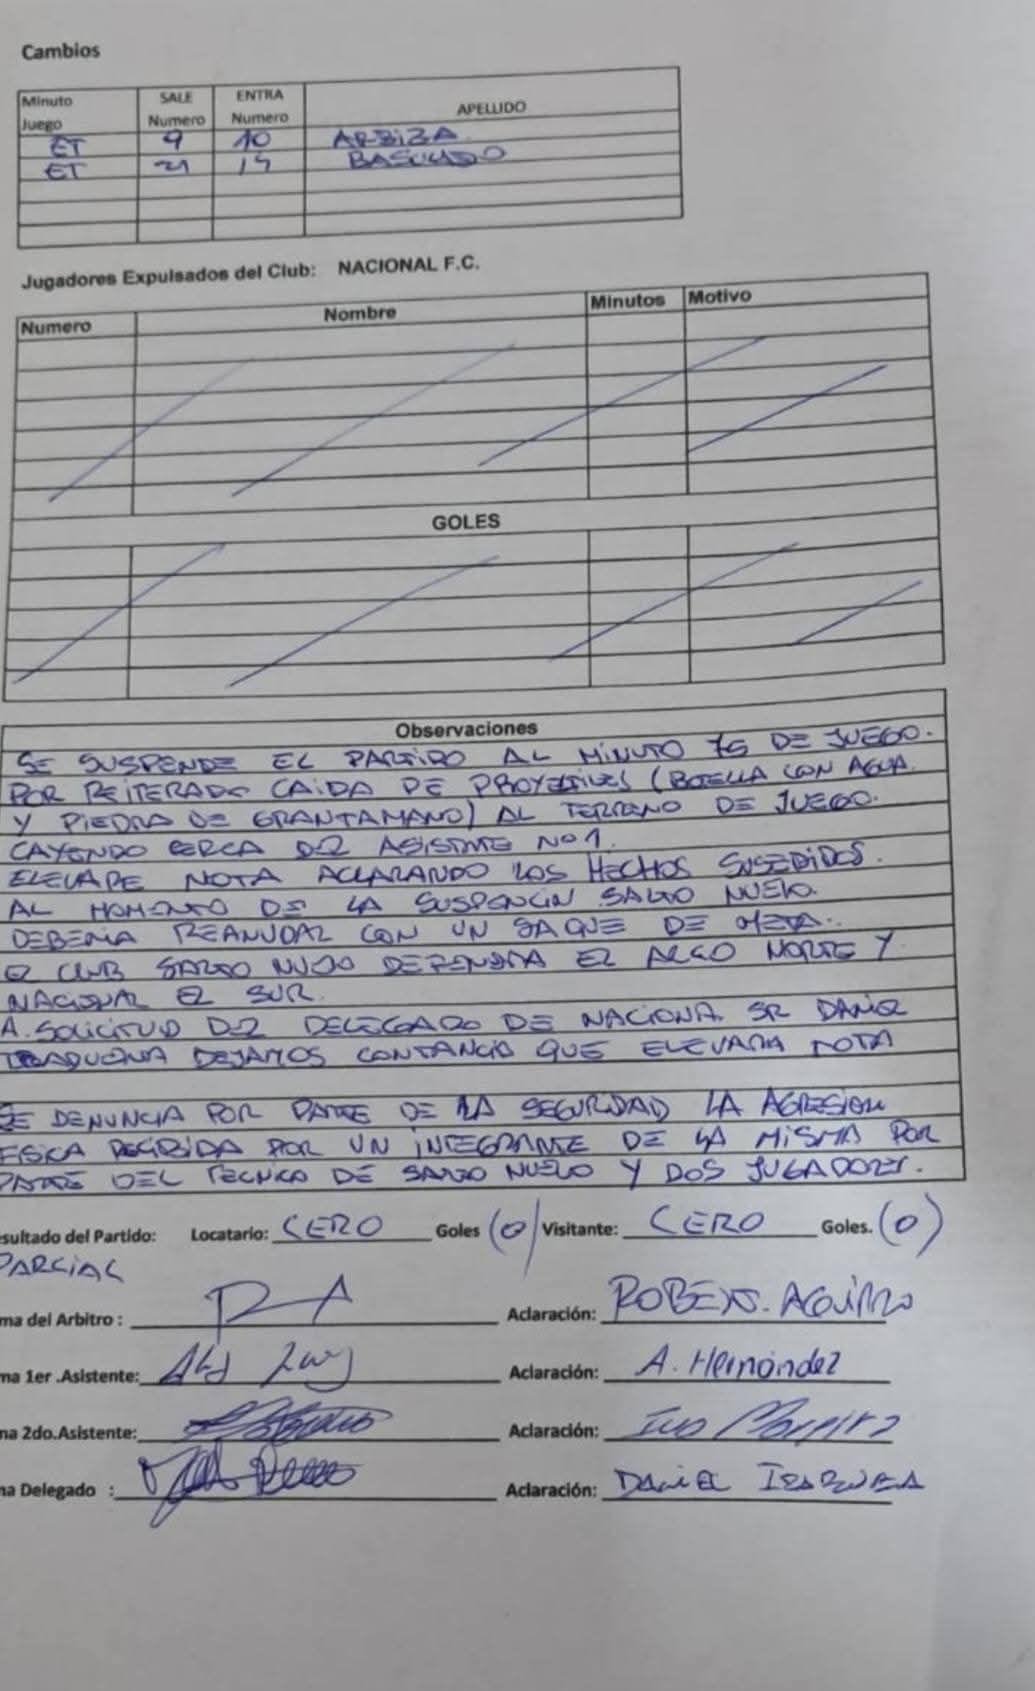 Cambios
Minuto Juego SALE Numero ENTRA Numero APELLIDO
ET 9 10 ARBIZA
ET 21 15 BASUALDO
Jugadores Expulsados del Club: NACIONAL F.C.
Numero Nombre Minutos Motivo
GOLES
Observaciones
SE SUSPENDE EL PARTIDO AL MINUTO 75 DE JUEGO.
POR REITERADO CAIDA DE PROYECTILES (BOTELLA CON AGUA
Y PIEDRA DE GRANTAMANO) AL TERRENO DE JUEGO.
CAYENDO CERCA DEL ASISTENTE Nº 1.
ELEVARE NOTA ACLARANDO LOS HECHOS SUSEDIDOS.
AL MOMENTO DE LA SUSPENCIN SALTO NUEVO.
DEBERIA REANUDAR CON UN SAQUE DE META.
EL CLUB SALTO NUEVO DEFENDIA EL ARCO NORTE Y
NACIONAL EL SUR.
A. SOLICITUD DEL DELEGADO DE NACIONAL SR DANIEL
DEJAMOS CONTANCIA QUE ELEVARA NOTA
SE DENUNCIA POR PARTE DE LA SEGURIDAD LA AGRESION
FISICA RECIBIDA POR UN INTEGRANTE DE LA MISMA POR
PARTE DEL TECNICO DE SALTO NUEVO Y DOS JUGADORES.
sultado del Partido: Locatario: CERO Goles (0) Visitante: CERO Goles. (0)
PARCIAL
ma del Arbitro : Aclaración: ROBERT. AGUIRRE
ma 1er .Asistente: Aclaración: A. Hernández
na 2do.Asistente: Aclaración: Ivo
na Delegado : Aclaración: DANIEL